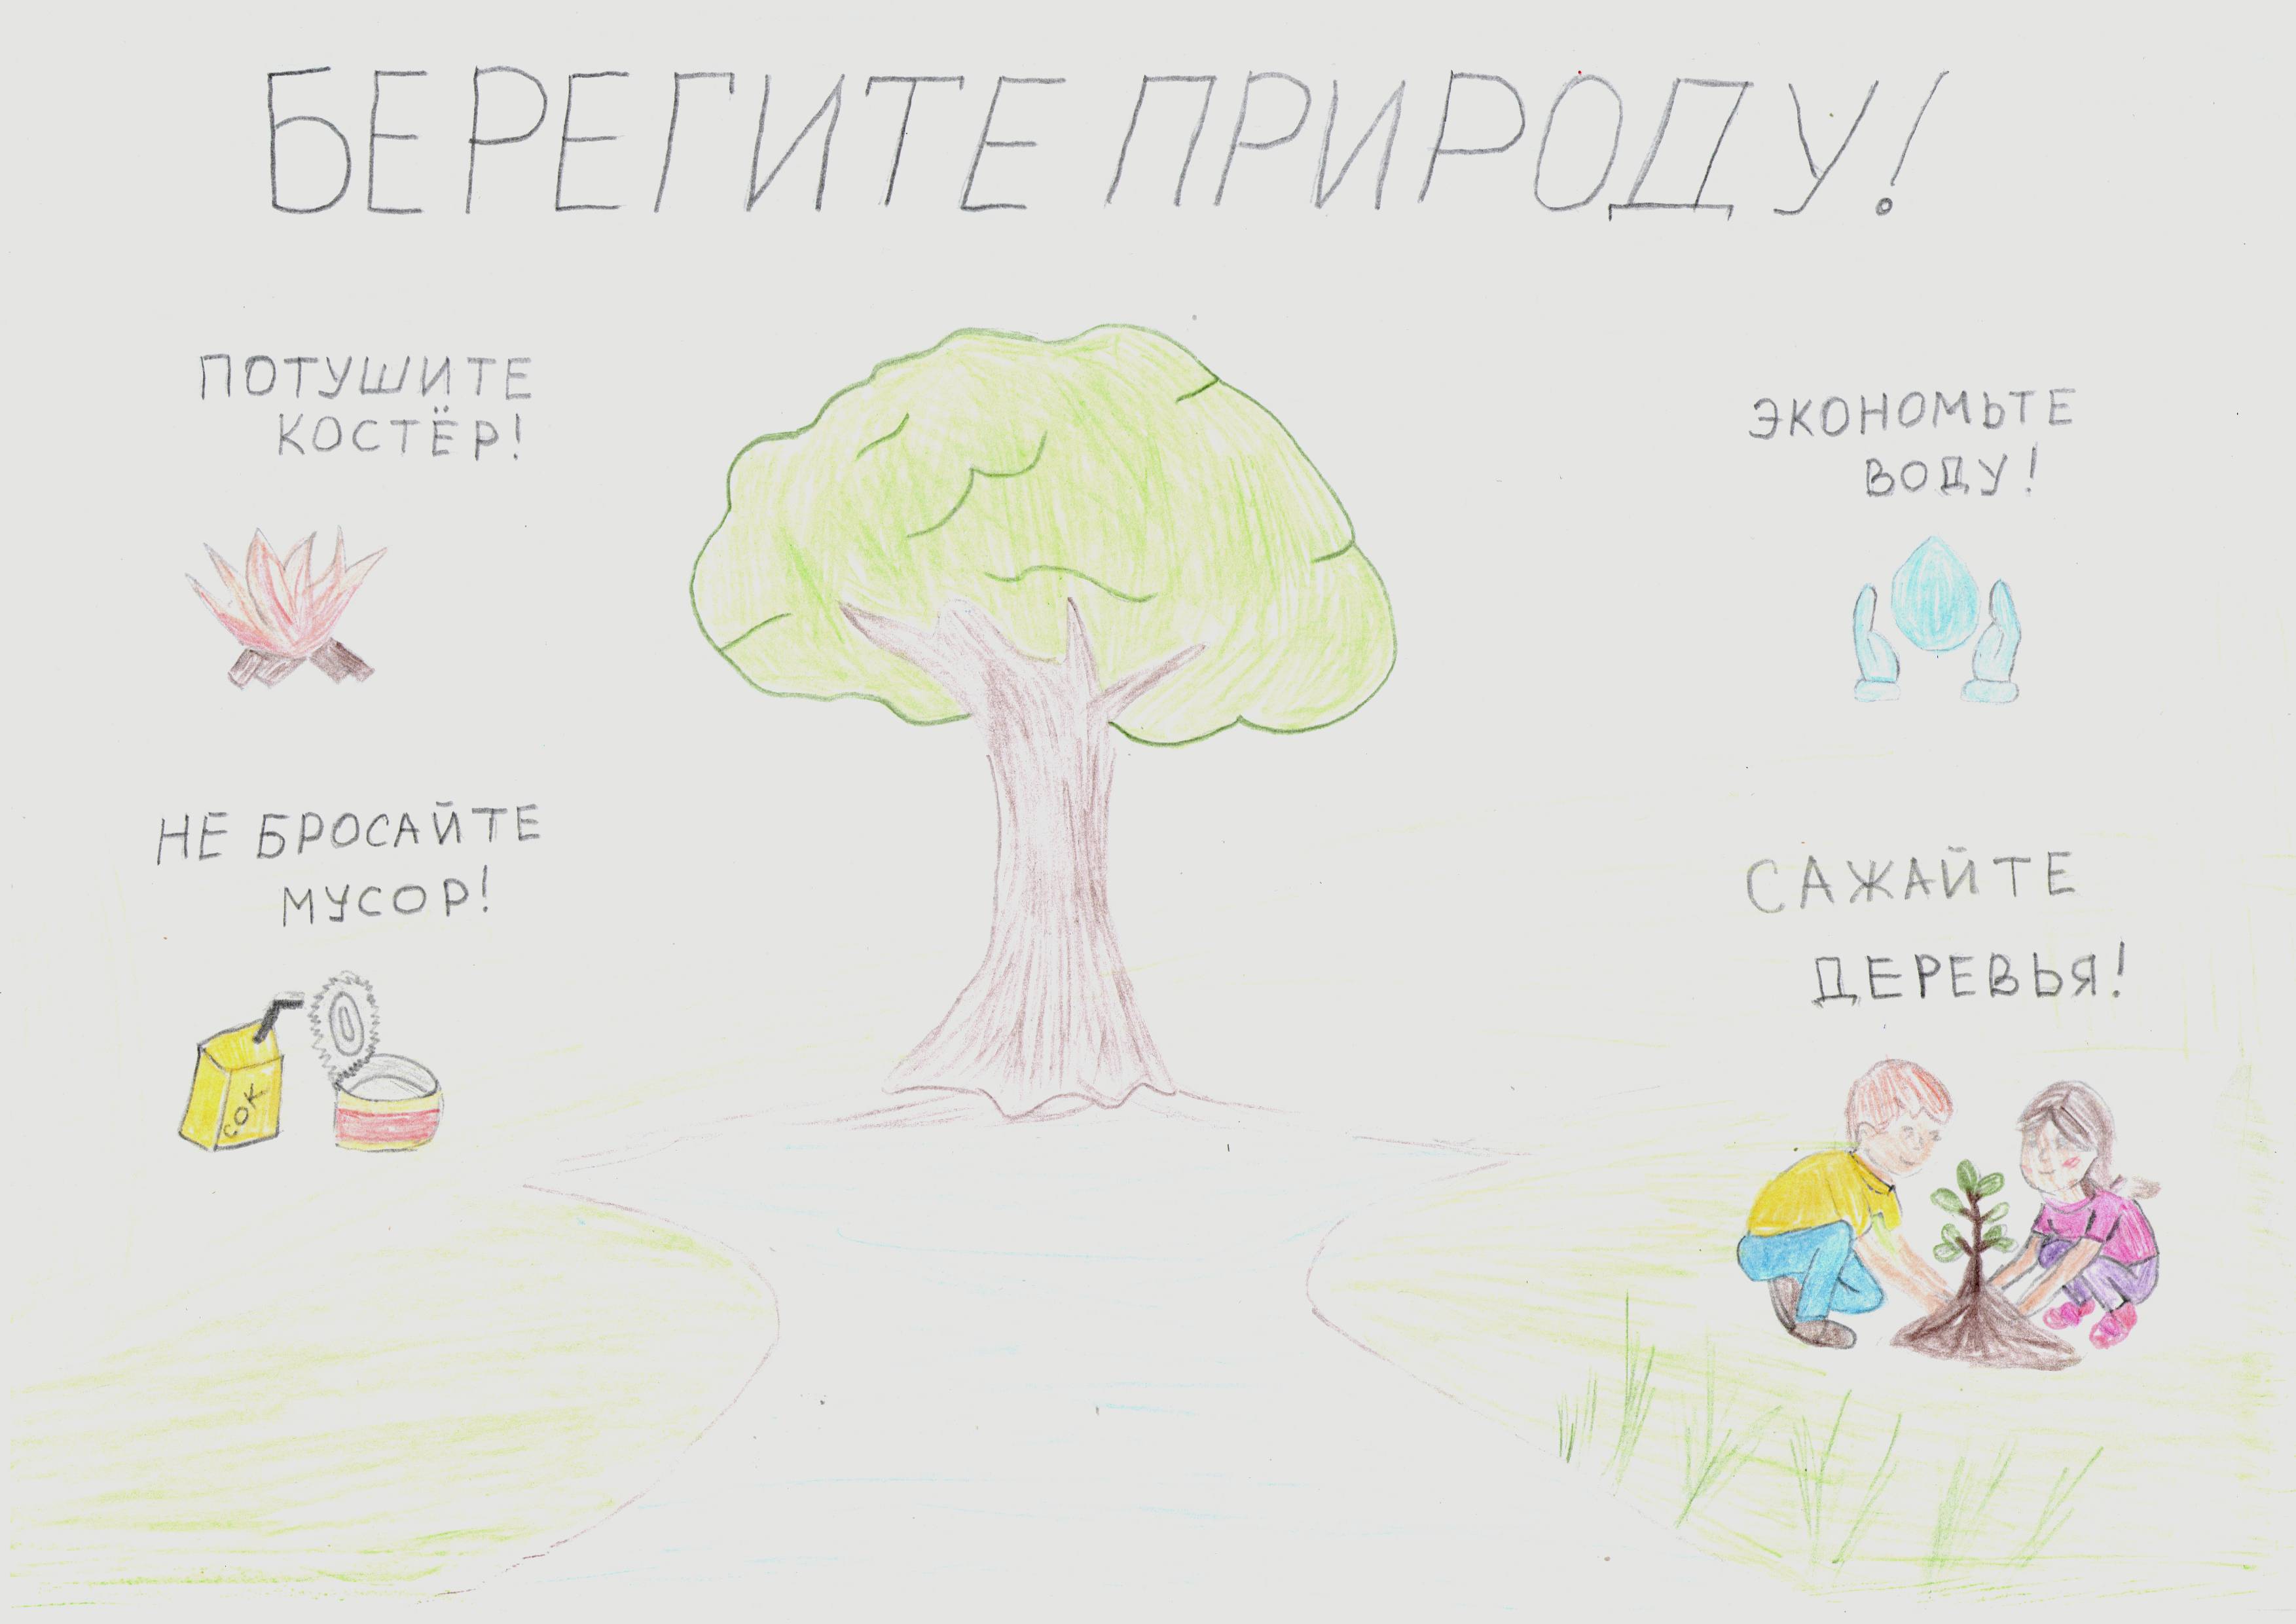 БЕРЕГИТЕ ПРИРОДУ!
ПОТУШИТЕ
КОСТЁР!
ЭКОНОМЬТЕ
ВОДУ!
НЕ БРОСАЙТЕ
МУСОР!
САЖАЙТЕ
ДЕРЕВЬЯ!
СОК